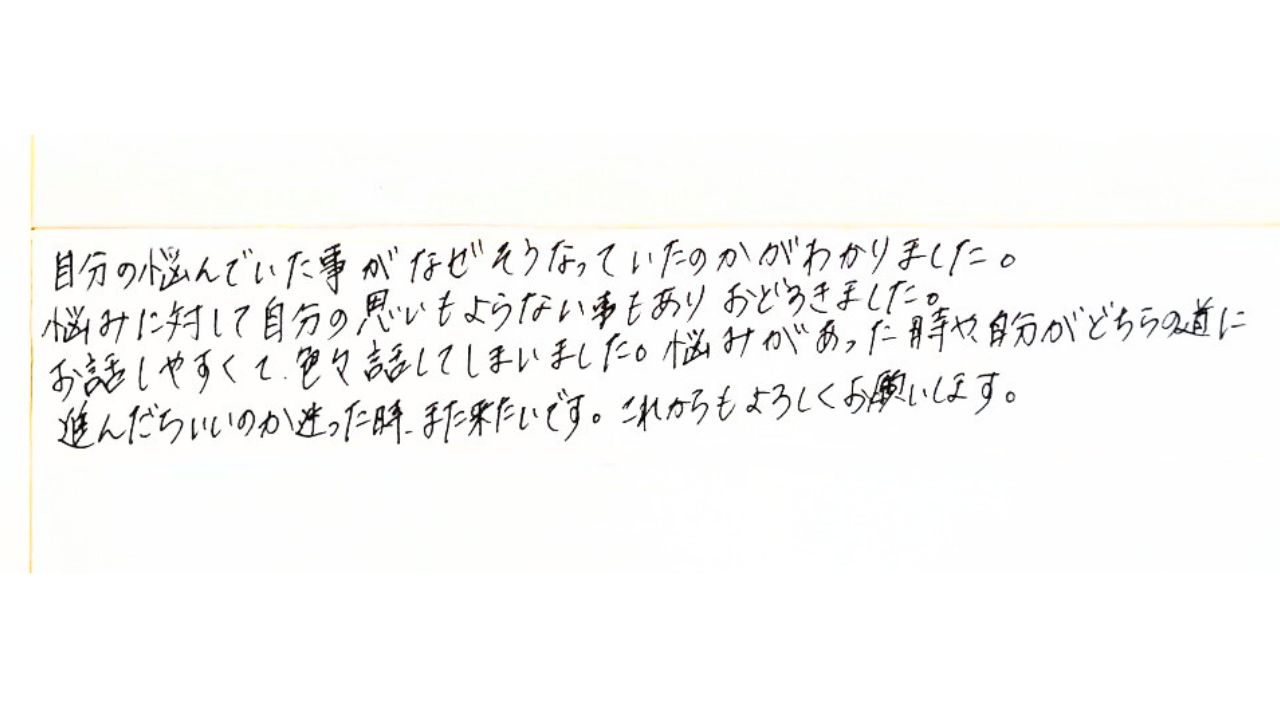 自分の悩んでいた事がなぜそうなっていたのかがわかりました。
悩みに対して自分の思いもよらない事もありおどろきました。
お話しやすくて、色々話してしまいました。悩みがあった時や、自分がどちらの道に
進んだらいいのか迷った時、また来たいです。これからもよろしくお願いします。